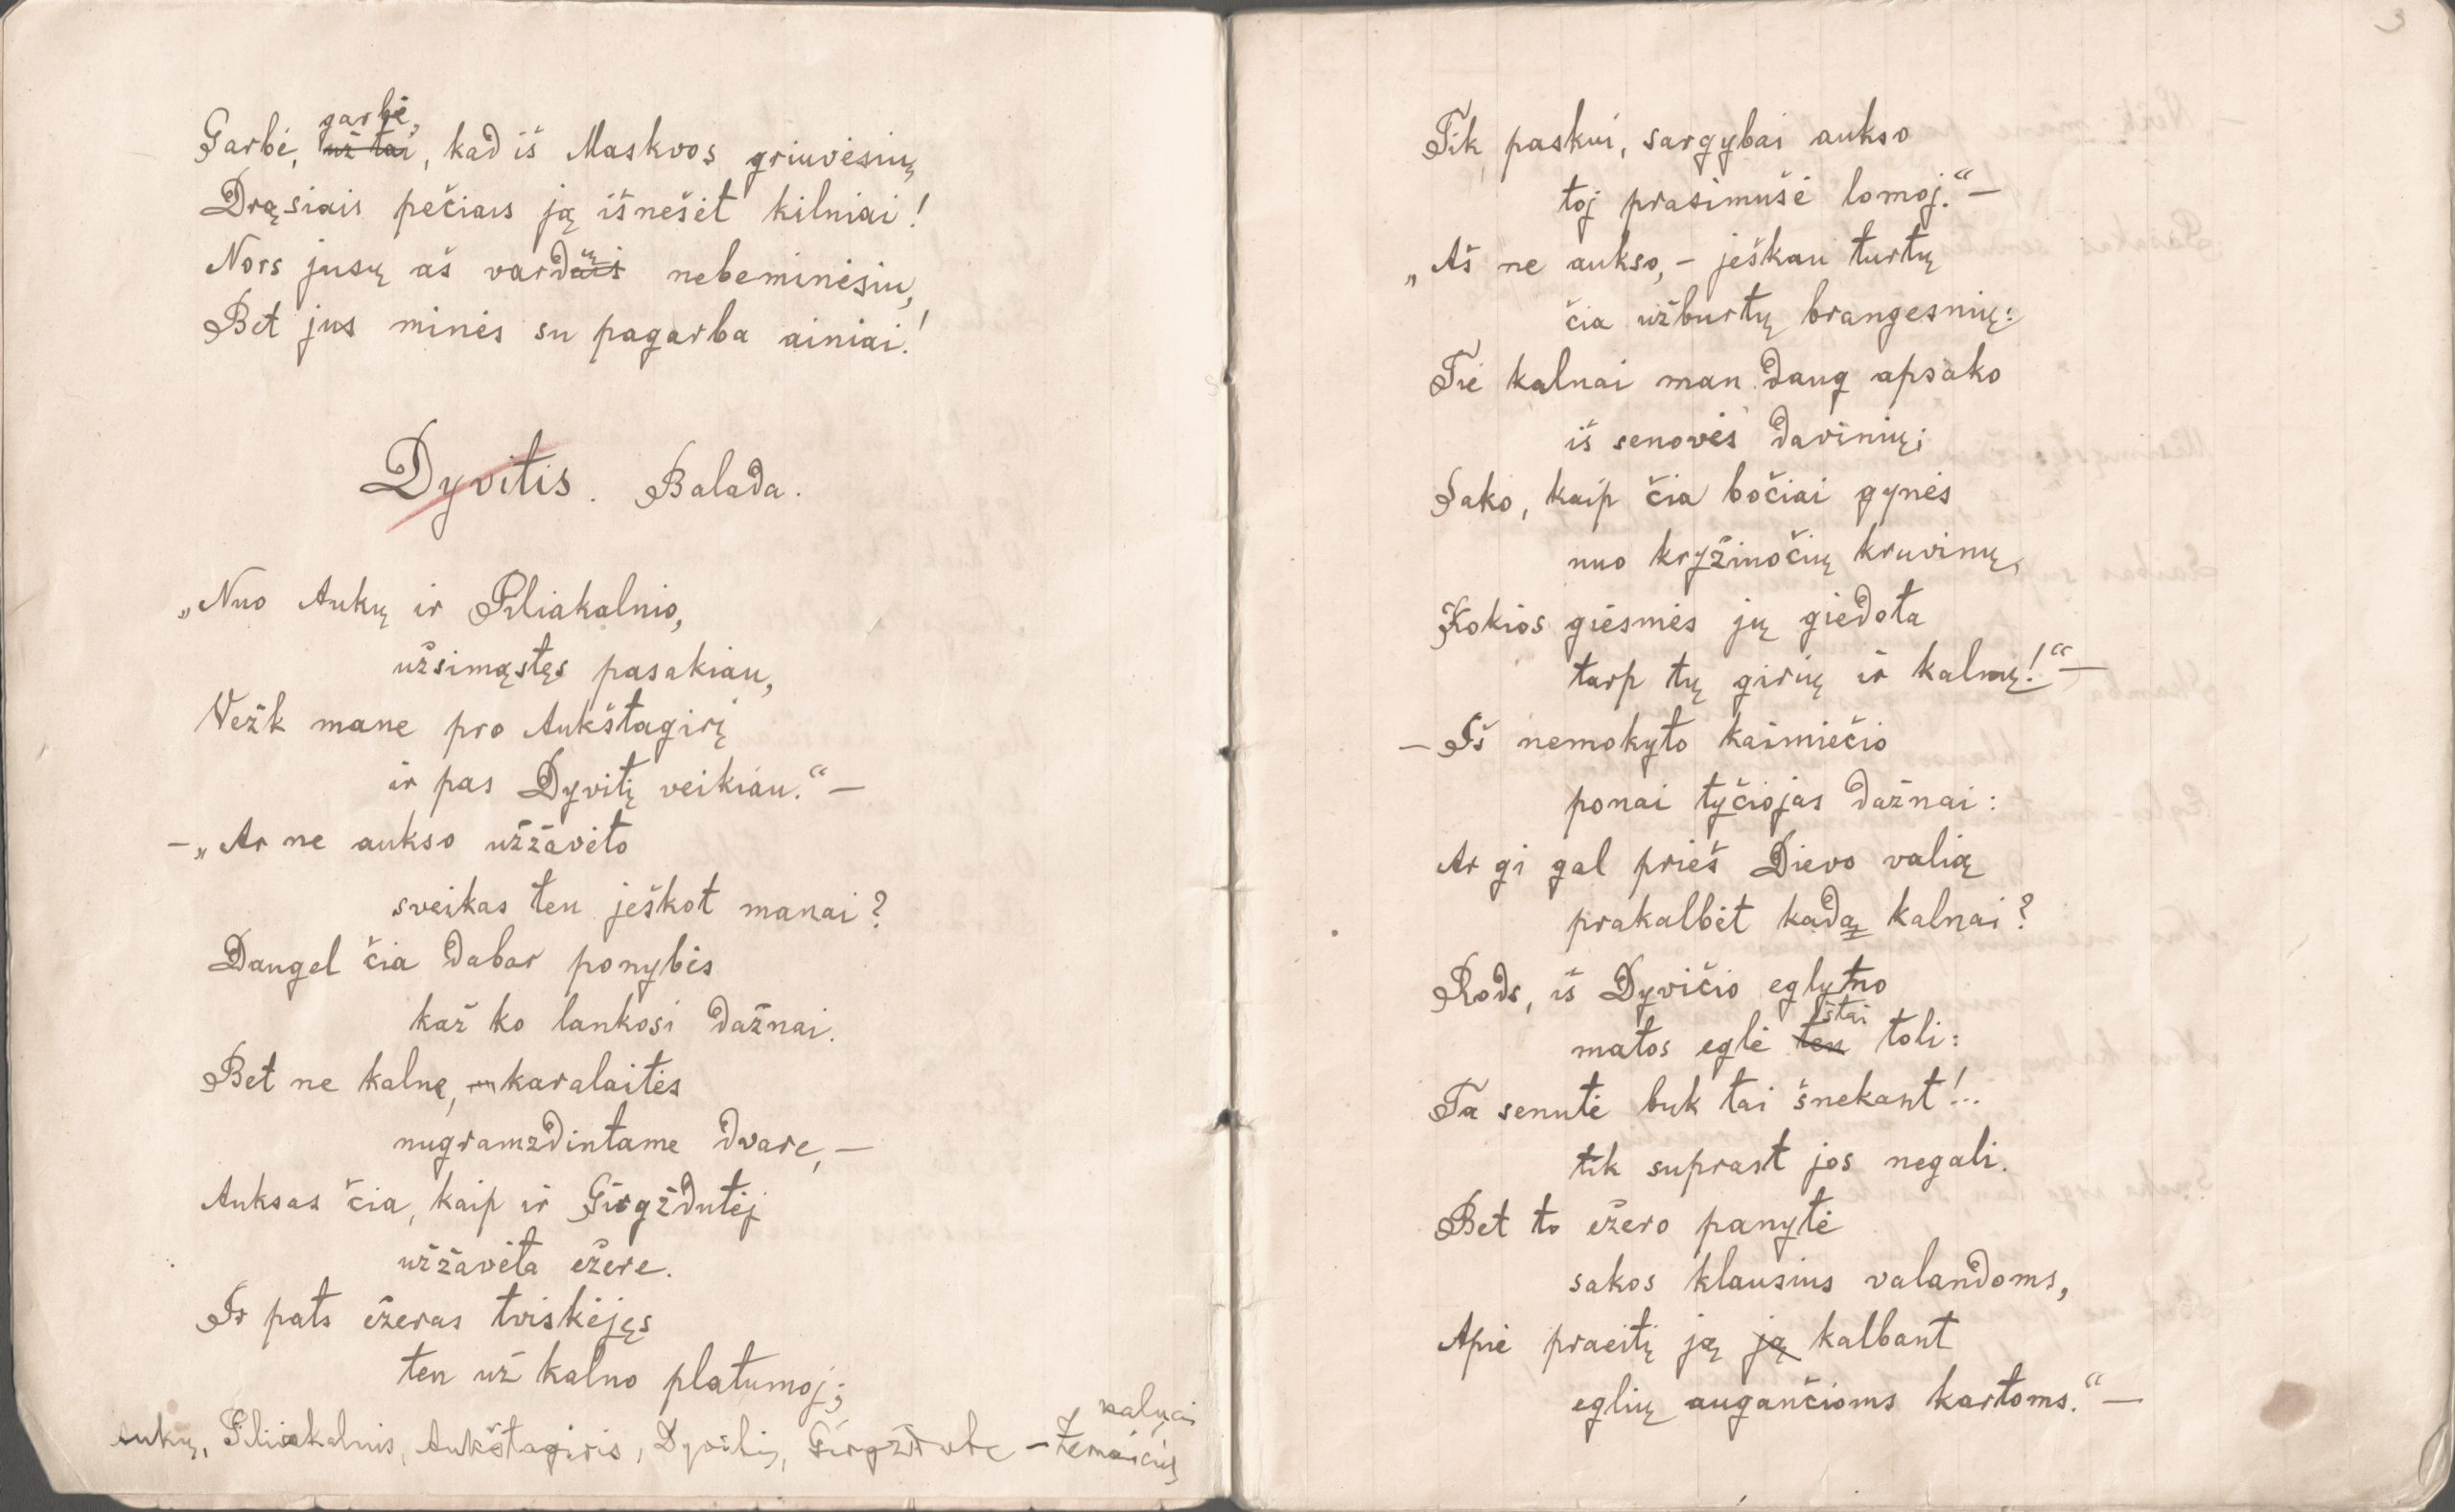 Garbė, garbė, kad iš Maskvos griuvėsių
Drąsiais pečiais ją išnešėt kilniai!
Nors jusų aš vardų nebeminėsiu,
Bet jus minės su pagarba ainiai!
Dyvitis. Balada.
„Nuo Aukų ir Piliakalnio,
užsimąstęs pasakiau,
Vežk mane pro Aukštagirį
ir pas Dyvitį veikiau.“ —
— „Ar ne aukso užžavėto
sveikas ten ješkot manai?
Daugel čia dabar ponybės
kaž ko lankosi dažnai.
Bet ne kalne, karalaitės
nugramzdintame dvare, —
Auksas čia, kaip ir Girgždutėj
užžavėta ežere.
Ir pats ežeras tviskėjęs
ten už kalno platumoj;
Aukų, Piliakalnis, Aukštagiris, Dyvitis, Girgždutė — Žemaičių kalnai
3
Tik paskui, sargybai aukso
toj prasimušė lomoj.“ —
„Aš ne aukso, — ješkau turtų
čia užburtų brangesnių:
Tie kalnai man daug apsako
iš senovės davinių;
Sako, kaip čia bočiai gynės
nuo kryžiuočių kruvinų,
Kokios giesmės jų giedota
tarp tų girių ir kalnų!“ —
— Iš nemokyto kaimiečio
ponai tyčiojas dažnai:
Ar gi gal prieš Dievo valią
prakalbėt kada kalnai?
Rods, iš Dyvičio eglyno
matos eglė štai toli:
Ta senutė buk tai šnekant!...
tik suprast jos negali.
Bet to ežero panytė
sakos klausius valandoms,
Apie praeitį ją kalbant
eglių augančioms kartoms.“ —